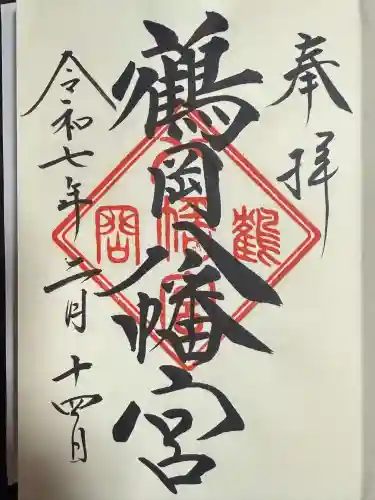 奉拝
鶴岡八幡宮
令和七年二月十四日
鶴
八幡宮
岡